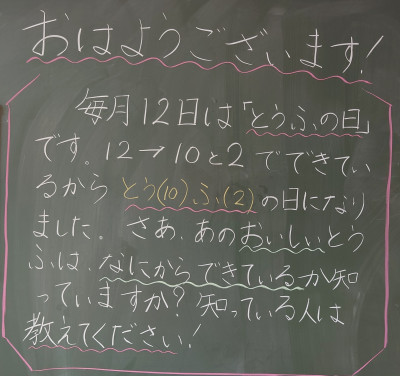 おはようございます!
毎月12日は「とうふの日」
です。12→10と2でできてい
るからとう(10)ふ(2)の日になり
ました。さあ、あのおいしいとう
ふは、なにからできているか知
っていますか?知っている人は
教えてください!